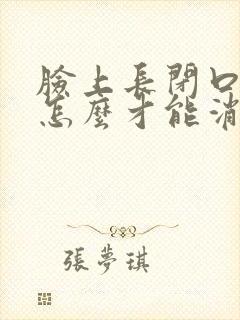 臉上長閉口
怎麼才能消
張夢琪